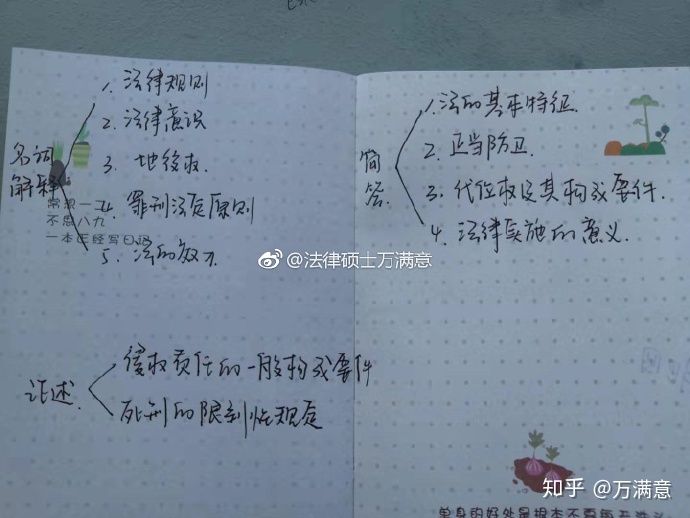 名词
解释
1. 法律规则
2. 法律意识
3. 地役权
4. 罪刑法定原则
5. 法的效力
常想一二
不思八九
一本正经写日记
论述
侵权责任的一般构成要件
死刑的限制性规定
简
答
1. 法的基本特征.
2. 正当防卫.
3. 代位权及其构成要件.
4. 法律实施的意义.
@法律硕士万满意
知乎 @万满意
单身的好处是根本不